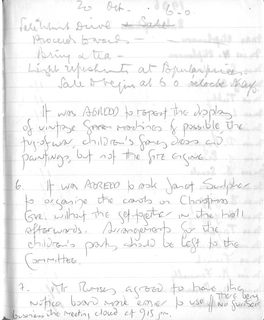 20 Oct. 6-0
Whist Drive
Proceeds towards
Bring a tea
Light refreshments at
Sale to begin at 6 o'clock
It was AGREED to repeat the display
of vintage machines & possible the
tug of war, children's fancy dress and
paintings, but not the fire engine.
6. It was AGREED to ask Janet
to organise the carols on Christmas
Eve, without the get together in the Hall
afterwards. Arrangements for the
children's party should be left to the
Committee.
7. Mr agreed to have the
notice board made easier to use. There being
no further
business the meeting closed at 9.15 pm.